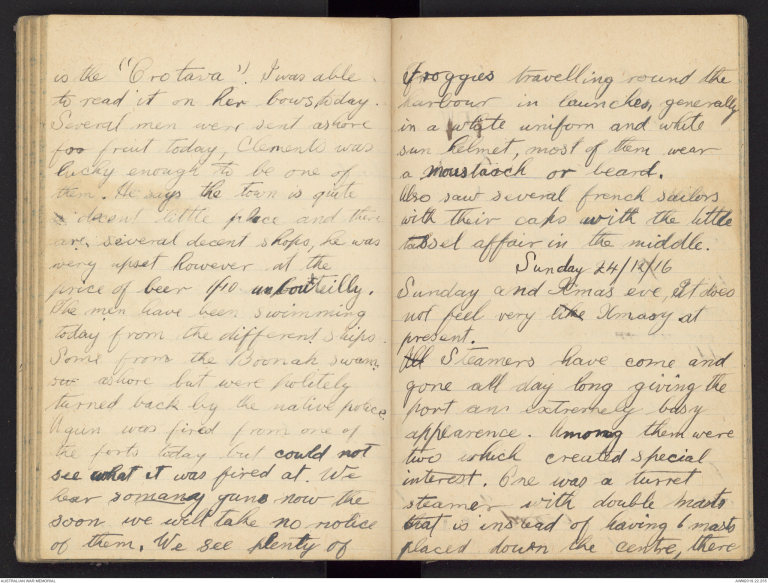 is the "Orotava". I was able
to read it on her bows today.
Several men were sent ashore
for fruit today, Clements was
lucky enough to be one of
them. He says the town is quite
a decent little place and there
are several decent shops, he was
very upset however at the
price of beer 1/10 unbotteilly.
The men have been swimming
today from the different ships.
Some from the Boonah swam
ashore but were politely
turned back by the native police.
A gun was fired from one of
the forts today but could not
see what it was fired at. We
hear somany guns now the
soon we will take no notice
of them. We see plenty of
Froggies travelling round the
harbour in launches, generally
in a white uniform and white
sun helmet, most of them wear
a moustasch or beard.
Also saw several french sailors
with their caps with the little
tassel affair in the middle.
Sunday 24/12/16
Sunday and Xmas eve, it does
not feel very like Xmasy at
present.
All Steamers have come and
gone all day long giving the
port an extremely busy
appearence. Among them were
two which created special
interest. One was a turret
steamer with double masts
that is instead of having 6 masts
placed down the centre, there
AUSTRALIAN WAR MEMORIAL